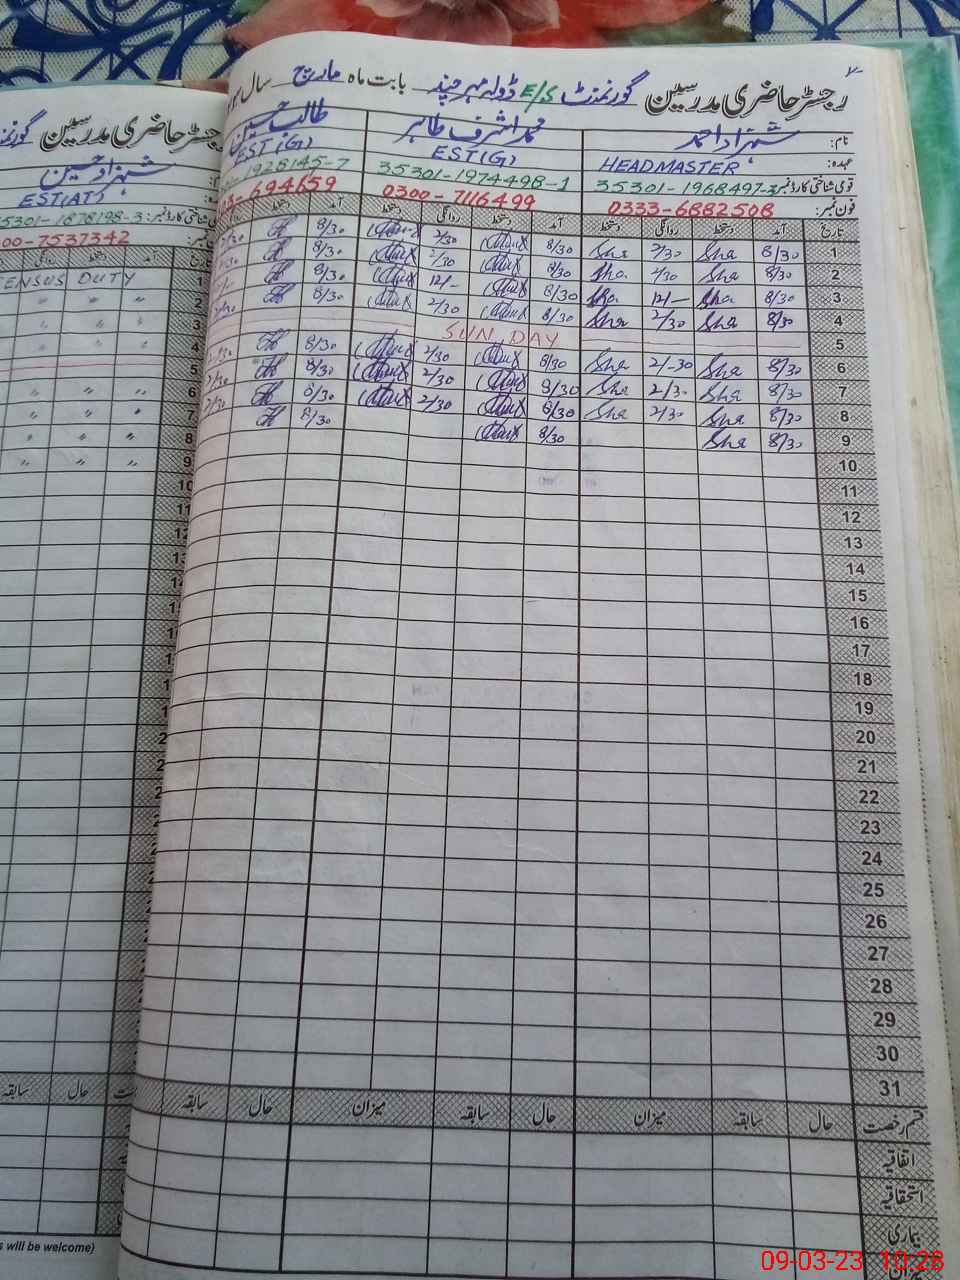 رجسٹر حاضری مدرسین گورنمنٹ E/S ڈولہ مہر چند بابت ماہ مارچ سال
نام: شہزاد احمد محمد اشرف طاہر طالب حسین
عہدہ: HEADMASTER EST(G) EST(G)
قومی شناختی کارڈ نمبر: 35301-1968497-3 35301-1974498-1 1928145-7
فون نمبر: 0333-6882508 0300-7116499 694159
تاریخ آمد دستخط روانگی دستخط آمد دستخط روانگی دستخط آمد دستخط
1 8/30 Sha 2/30 Sha 8/30 2/30 8/30 2/30
2 8/30 Sha 2/30 Sha 8/30 2/30 8/30
3 8/30 Sha 12/— Sha 8/30 12/— 8/30
4 8/30 Sha 2/30 Sha 8/30 2/30 8/30 2/30
5 SUNDAY
6 8/30 Sha 2/-30 Sha 8/30 2/30 8/30 2/30
7 8/30 Sha 2/30 Sha 8/30 2/30 8/30 2/30
8 8/30 Sha 2/30 Sha 8/30 2/30 8/30 2/30
9 8/30 Sha 8/30 8/30
10
11
12
13
14
15
16
17
18
19
20
21
22
23
24
25
26
27
28
29
30
31
قسم رخصت حال سابقہ میزان حال سابقہ میزان حال سابقہ
اتفاقیہ
استحقاقیہ
بیماری
رجسٹر حاضری مدرسین
شہزاد حسین
EST(AT)
شناختی کارڈ نمبر: 35301-1878198-3
00-7537342
آمد دستخط روانگی
ENSUS DUTY
2 〃 〃
3 〃 〃 〃
4 〃 〃 〃
5
6 〃 〃
7 〃 〃 〃
8 〃 〃 〃
9 〃 〃 〃
10
11
حال سابقہ
s will be welcome)
09-03-23 10:28